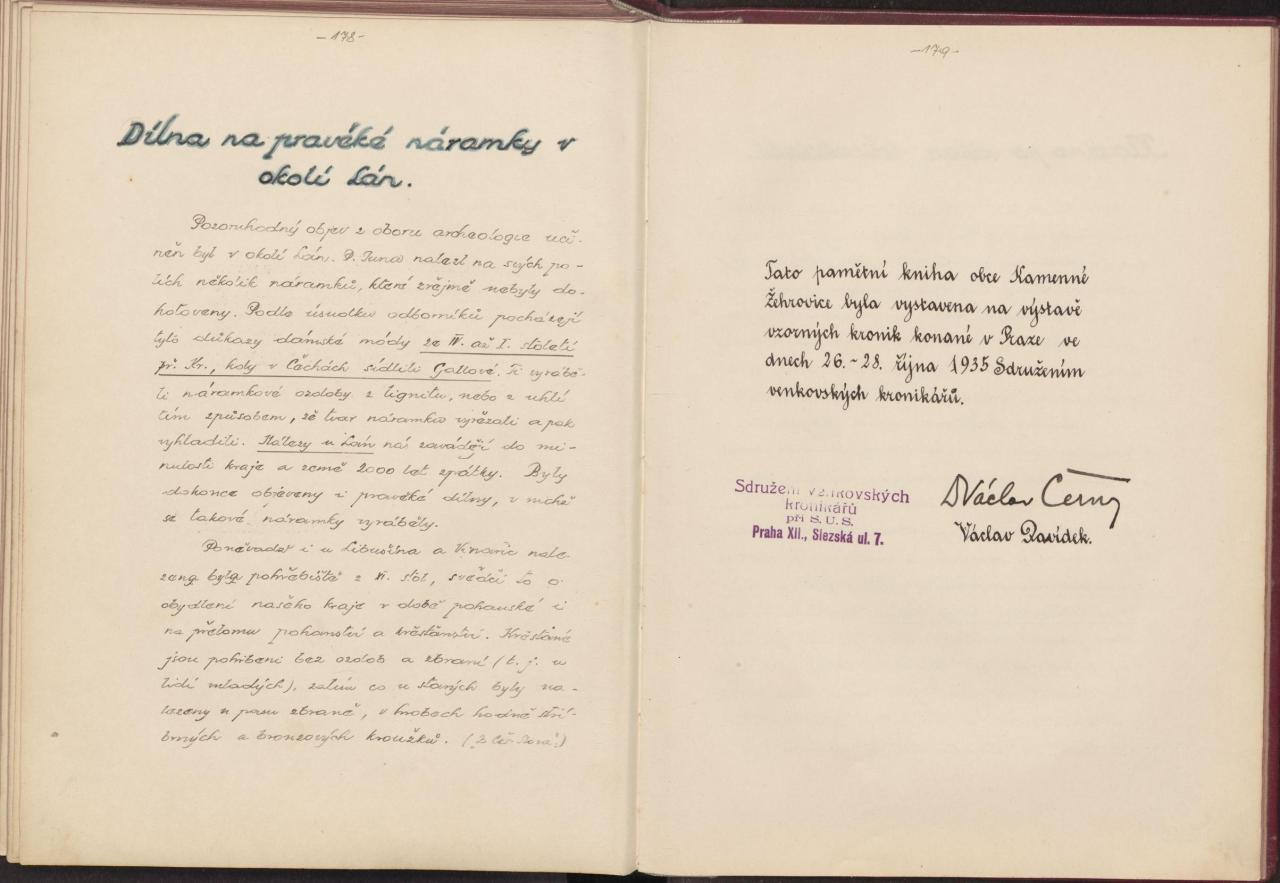 - 178 -
Dílna na pravěké náramky v
okolí Lán.
Pozoruhodný objev z oboru archeologie uči-
něn byl v okolí Lán. P. Tuna nalezl na svých po-
lích několik náramků, které zřejmě nebyly do-
hotoveny. Podle úsudku odborníků pocházejí
tyto důkazy dámské módy ze IV. až I. století
př. Kr., kdy v Čechách sídlili Gallové. Ti vyrábě-
li náramkové ozdoby z lignitu, nebo z uhlí
tím způsobem, že tvar náramku vyřezali a pak
vyhladili. Nálezy u Lán nás zavádějí do mi-
nulosti kraje a země 2000 let zpátky. Byly
dokonce objeveny i pravěké dílny, v nichž
se takové náramky vyráběly.
Poněvadž i u Libušína a Vinařic nale-
zena byla pohřebiště z XI. stol, svědčí to o
obydlení našeho kraje v době pohanské i
na přelomu pohanství a křesťanství. Křesťané
jsou pohřbeni bez ozdob a zbraní (t. j. u
lidí mladých), zatím co u starých byly na-
lezeny u pasu zbraně, v hrobech hodně stří-
brných a bronzových kroužků.
- 179 -
Tato pamětní kniha obce Kamenné
Žehrovice byla vystavena na výstavě
vzorných kronik konané v Praze ve
dnech 26.-28. října 1935 Sdružením
venkovských kronikářů.
Sdružení venkovských
kronikářů
při S. U. S.
Praha XII., Slezská ul. 7.
Dr Václav Černý
Václav Davídek.